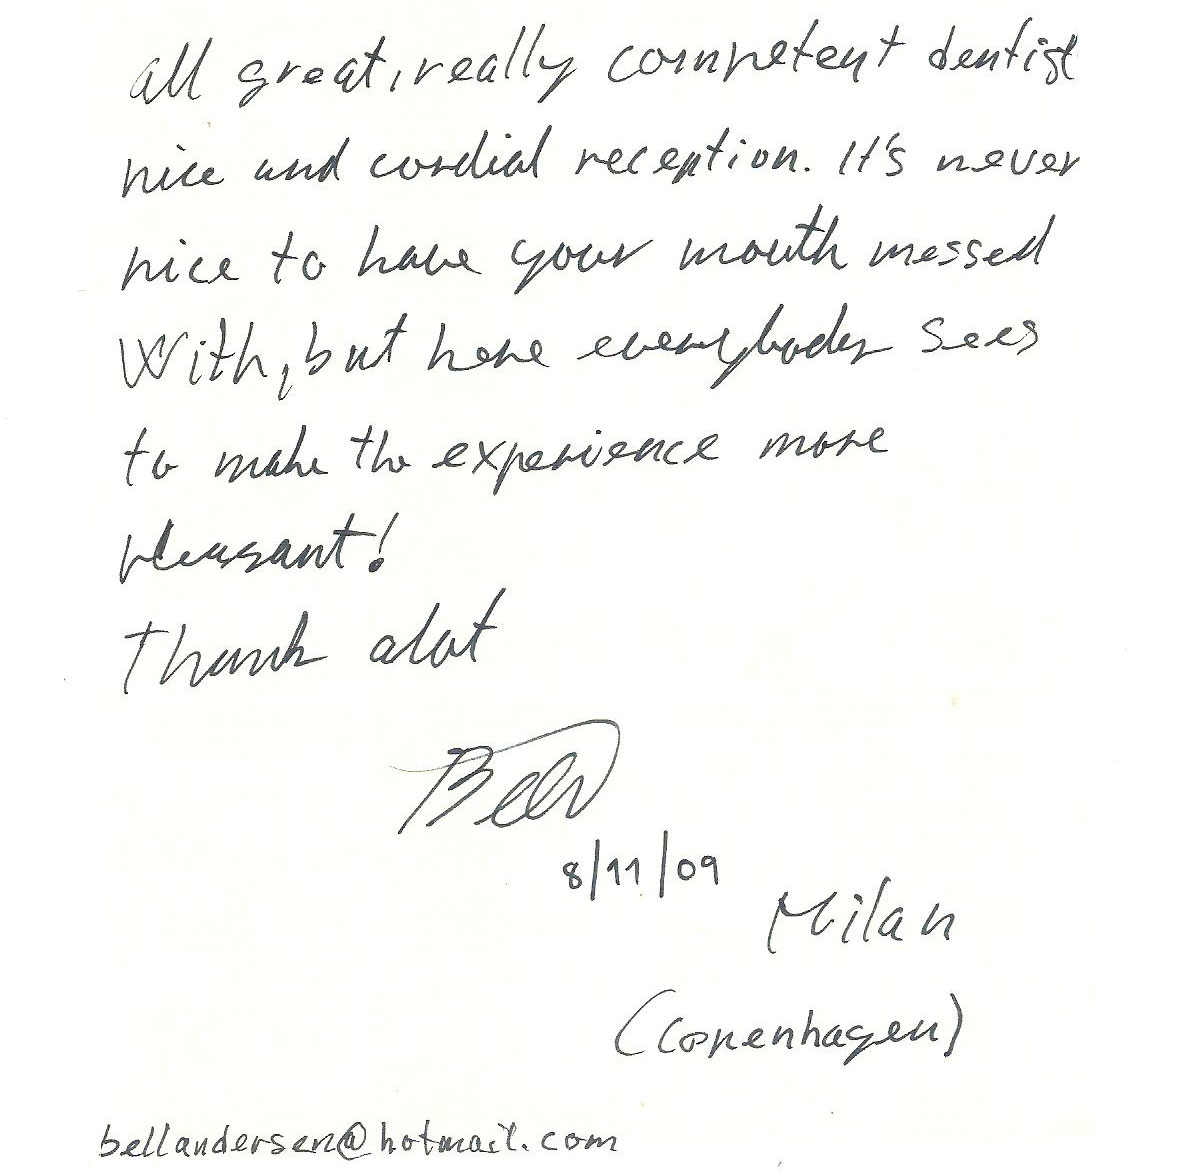 all great, really competent dentist
nice and cordial reception. It's never
nice to have your mouth messed
With, but here everybody sees
to make the experience more
pleasant!
Thank alot
8/11/09
Milan
(Copenhagen)
bellandersen@hotmail.com